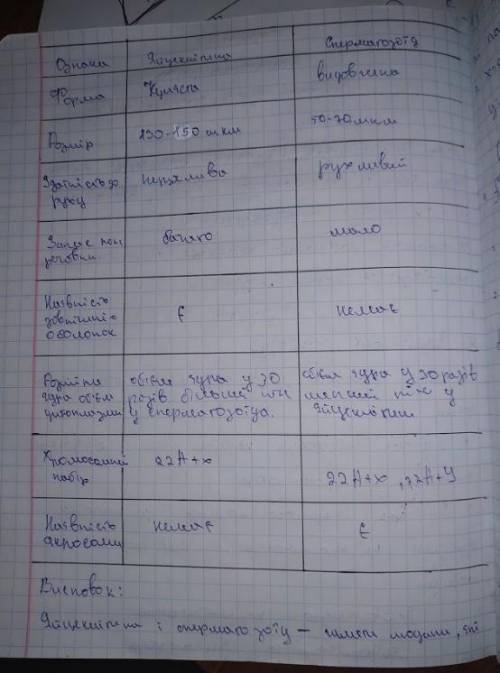 Ознака Яйцеклітина Сперматозоїд
Форма Куляста видовжена
Розмір 130-150 мкм 50-70 мкм
Здатність до нерухлива рухливий
руху
Запас пож. багато мало
речовин
Наявність
зовнішніх Є немає
оболонок
Розміри об'єм ядра у 30 об'єм ядра у 30 разів
ядра об'єм разів більший ніж менший ніж у
цитоплазми у сперматозоїда. яйцеклітини
Хромосомний 22А+х 22А+х, 22А+У
набір
Наявність немає Є
акросоми
Висновок:
Яйцеклітина і сперматозоїд – гамети людини, які